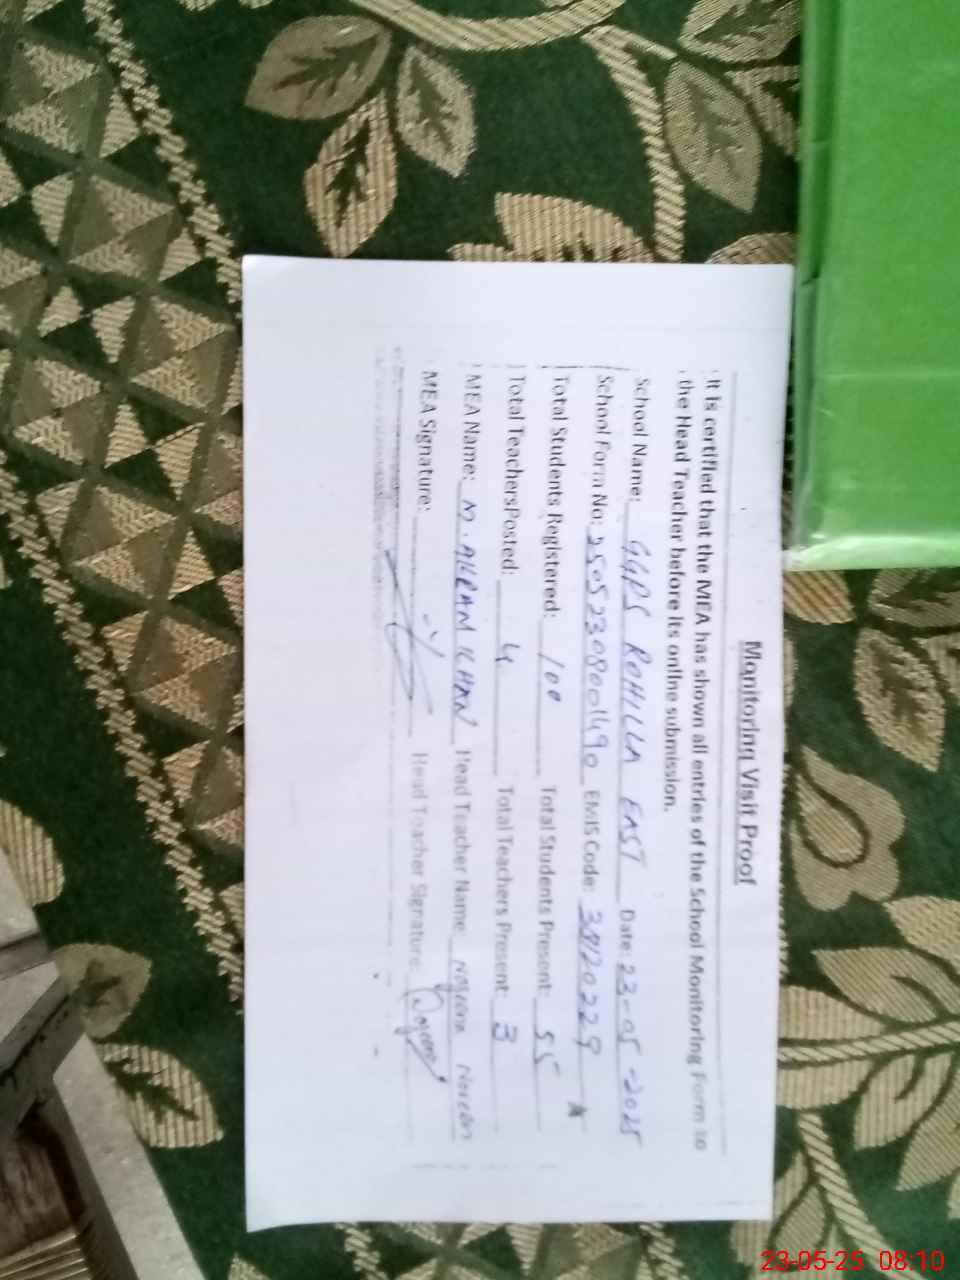 Monitoring Visit Proof
It is certified that the MEA has shown all entries of the School Monitoring Form to
the Head Teacher before its online submission.
School Name: GGPS ROHILLA EAST Date: 23-05-2025
School Form No: 25052308001490 EMIS Code: 38120229
Total Students Registered: 100 Total Students Present: 55
Total TeachersPosted: 4 Total Teachers Present: 3
MEA Name: M. AKRAM KHAN Head Teacher Name
MEA Signature: Head Teacher Signature:
23-05-25 08:10